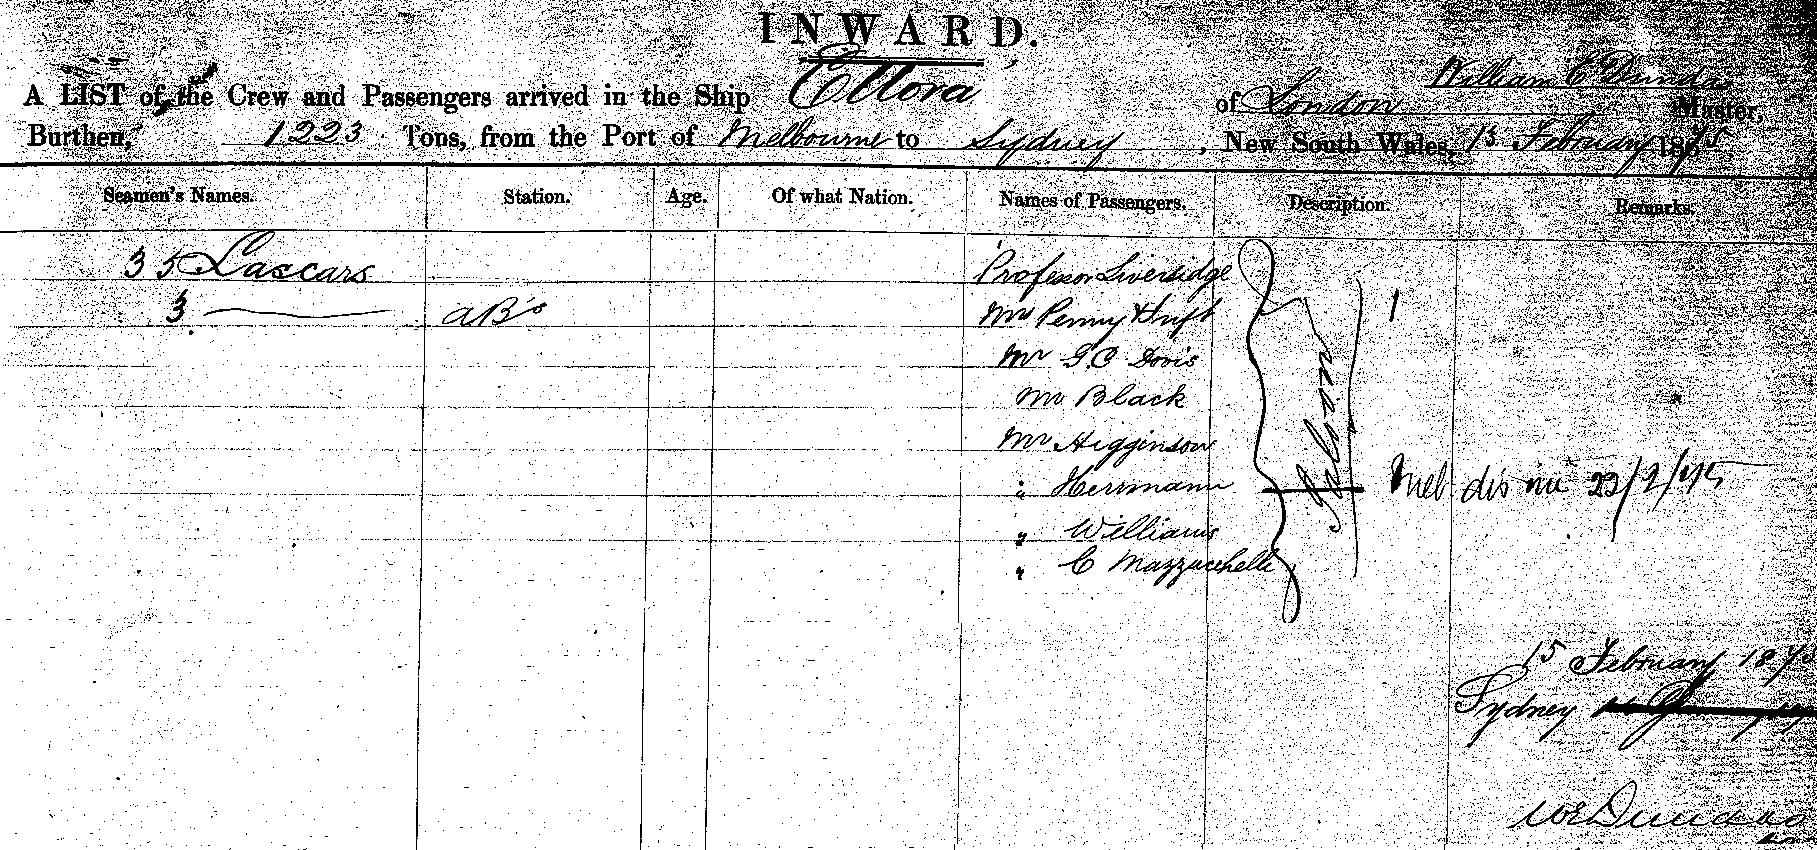 INWARD.
A LIST of the Crew and Passengers arrived in the Ship Ellora of London William E Master,
Burthen, 1223 Tons, from the Port of Melbourne to Sydney, New South Wales, 13 February 1875
Seamen's Names. Station. Age. Of what Nation. Names of Passengers. Description. Remarks.
35 Lascars Professor Liversidge
3 AB's Mrs Penny & Inft 1
Mr Davis
Mr Black
Mr Higginson
" Herrmann Mel dis 22/2/75
" Williams
" C Mazzucchelli
Saloon
15 February 1875
Sydney